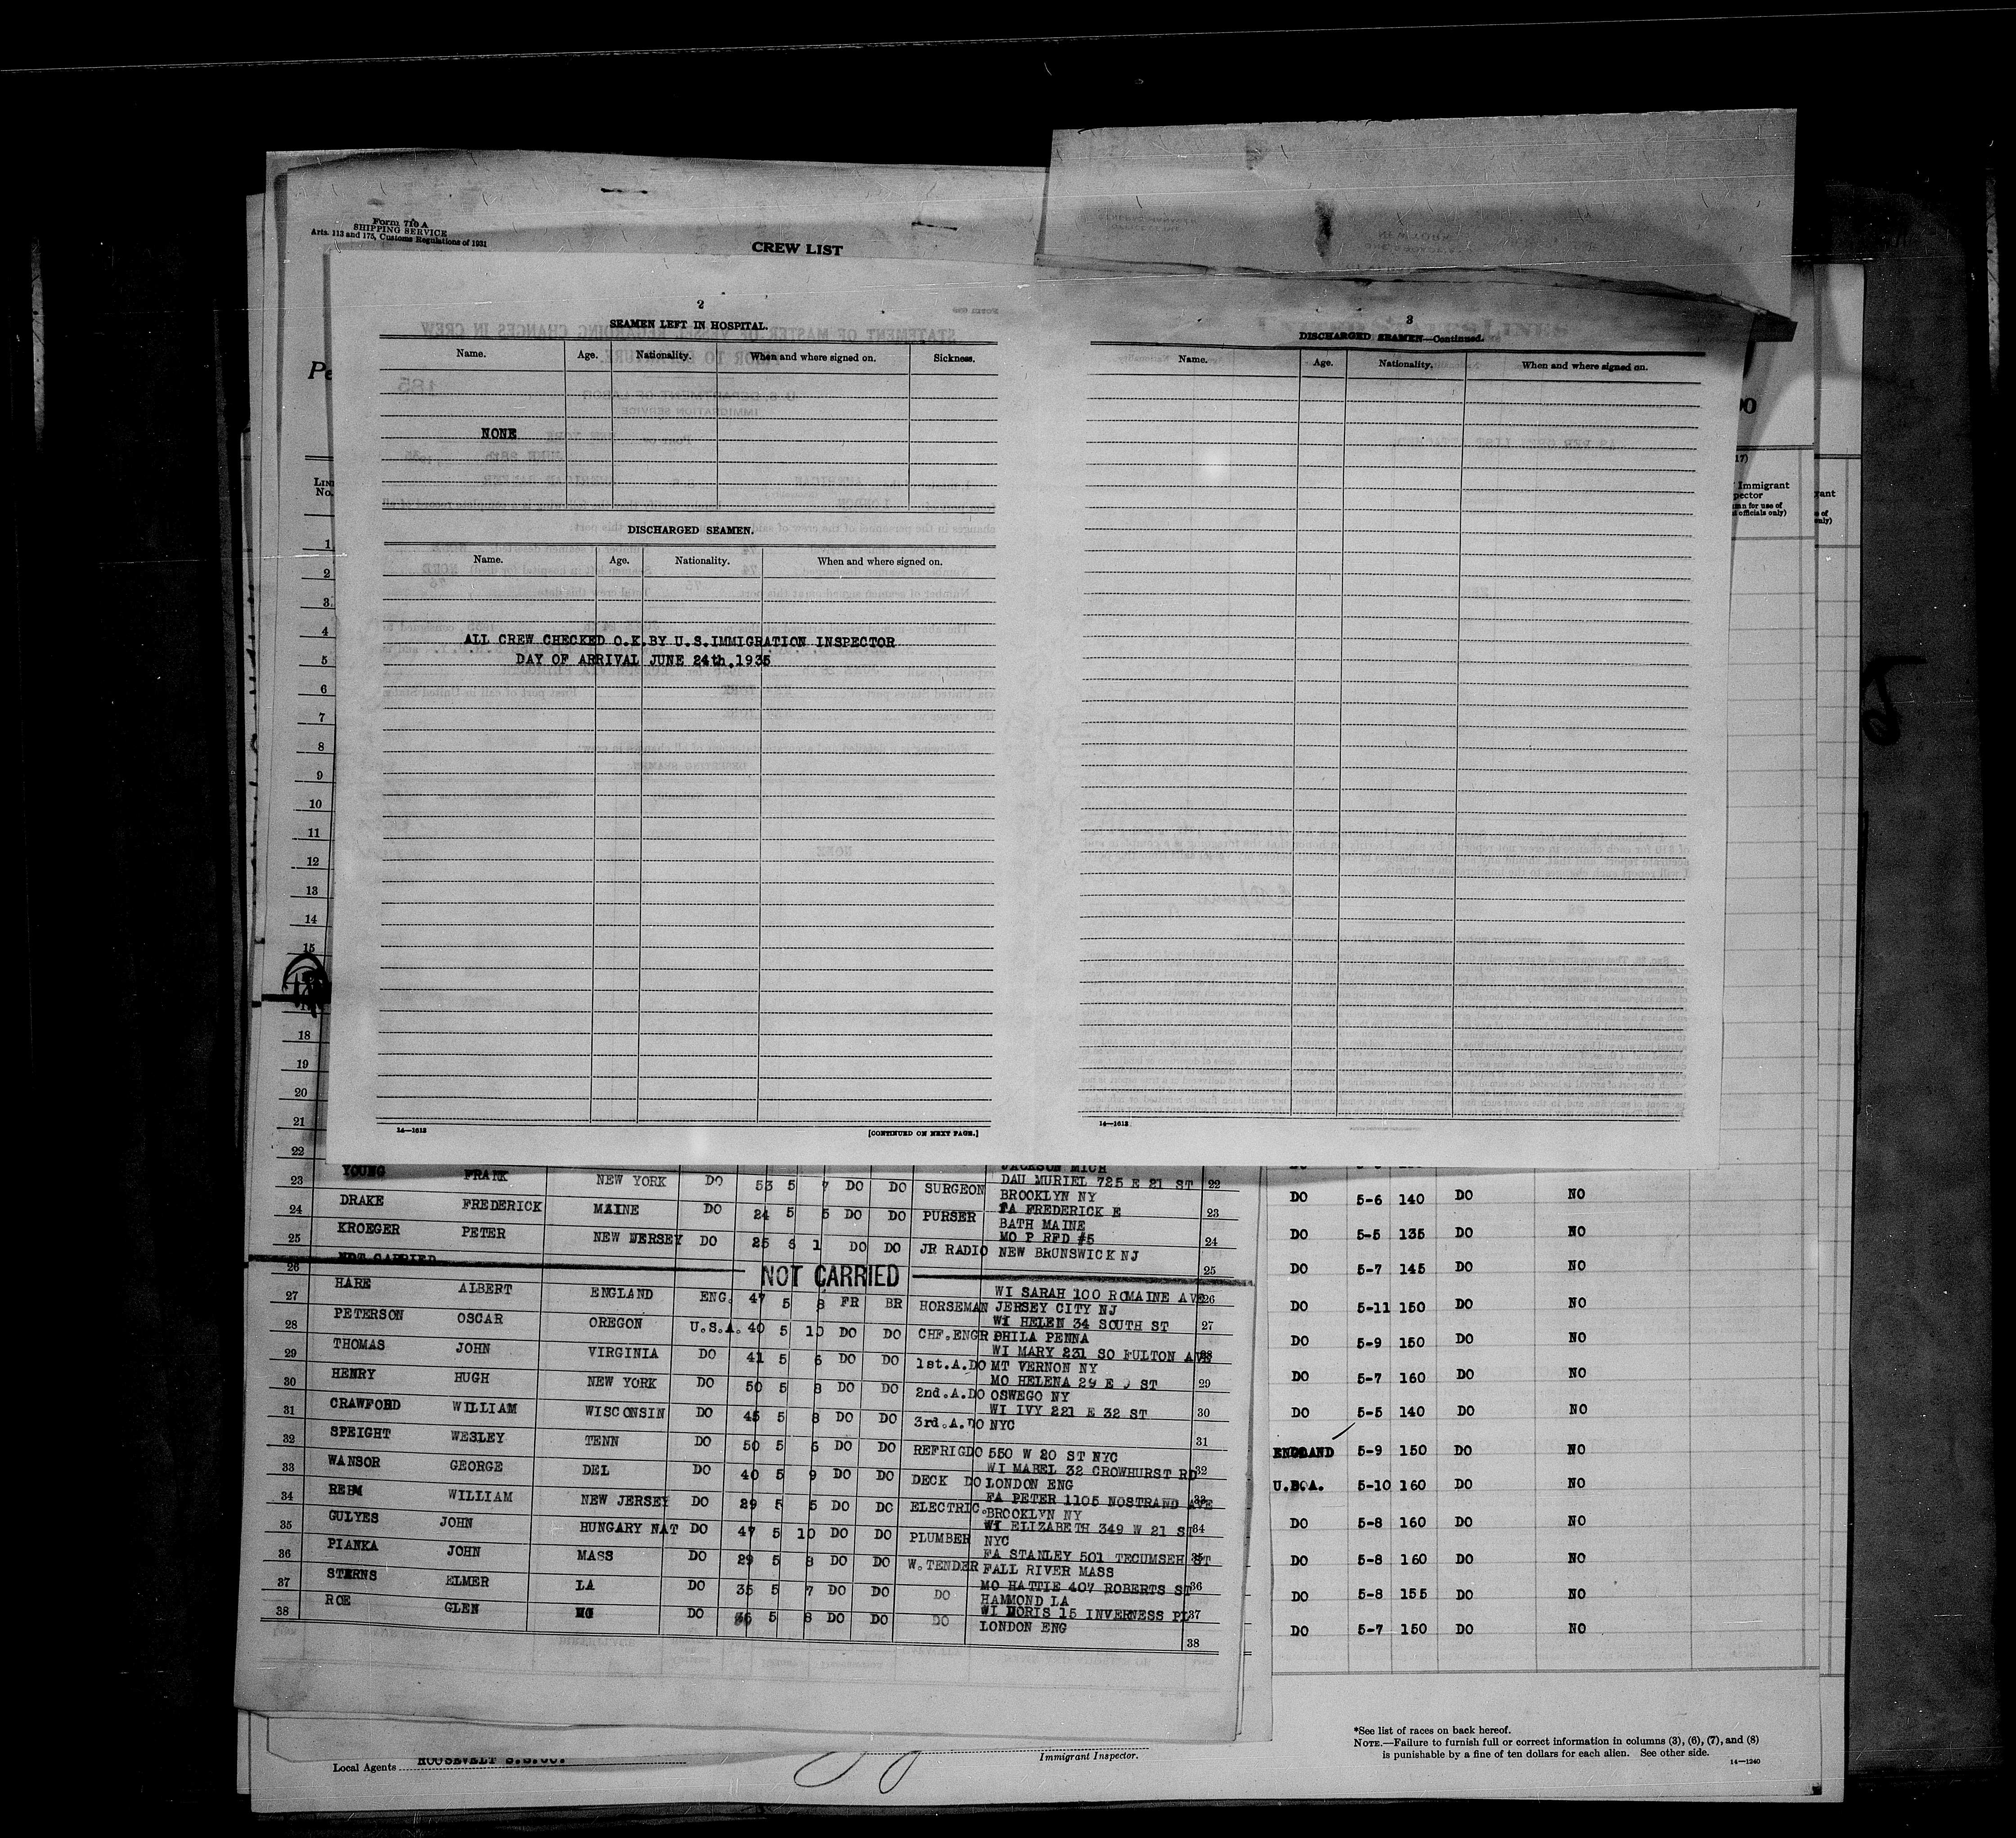 Form 710 A
SHIPPING SERVICE
Arts. 113 and 175, Customs Regulations of 1931
CREW LIST
2
SEAMEN LEFT IN HOSPITAL.
Name. Age. Nationality. When and where signed on. Sickness.
NONE
DISCHARGED SEAMEN.
Name. Age. Nationality. When and where signed on.
ALL CREW CHECKED O.K. BY U.S. IMMIGRATION INSPECTOR
DAY OF ARRIVAL JUNE 24th. 1935
14—1613 [CONTINUED ON NEXT PAGE.]
3
DISCHARGED SEAMEN—Continued.
Name. Age. Nationality. When and where signed on.
14—1613
1
2
3
4
5
6
7
8
9
10
11
12
13
14
15
18
19
20
21
22
JACKSON MICH
23 YOUNG FRANK NEW YORK DO 53 5 7 DO DO SURGEON DAU MURIEL 725 E 21 ST 22
BROOKLYN NY
24 DRAKE FREDERICK MAINE DO 24 5 5 DO DO PURSER FA FREDERICK E 23
BATH MAINE
25 KROEGER PETER NEW JERSEY DO 25 5 1 DO DO JR RADIO MO P RFD #5 24
NEW BRUNSWICK NJ
26 NOT CARRIED NOT CARRIED 25
27 HARE ALBERT ENGLAND ENG. 47 5 8 FR BR HORSEMAN WI SARAH 100 ROMAINE AVE 26
JERSEY CITY NJ
28 PETERSON OSCAR OREGON U.S.A. 40 5 10 DO DO CHF.ENGR WI HELEN 34 SOUTH ST 27
PHILA PENNA
29 THOMAS JOHN VIRGINIA DO 41 5 6 DO DO 1st.A.DO WI MARY 231 SO FULTON AVE 28
MT VERNON NY
30 HENRY HUGH NEW YORK DO 50 5 8 DO DO 2nd.A.DO MO HELENA 29 E ST 29
OSWEGO NY
31 CRAWFORD WILLIAM WISCONSIN DO 45 5 8 DO DO 3rd.A.DO WI IVY 221 E 32 ST 30
NYC
32 SPEIGHT WESLEY TENN DO 50 5 6 DO DO REFRIGDO 550 W 20 ST NYC 31
33 WANSOR GEORGE DEL DO 40 5 9 DO DO DECK DO WI MABEL 32 CROWHURST RD 32
LONDON ENG
34 REHM WILLIAM NEW JERSEY DO 29 5 5 DO DO ELECTRIC. FA PETER 1105 NOSTRAND AVE 33
BROOKLYN NY
35 GULYES JOHN HUNGARY NAT DO 47 5 10 DO DO PLUMBER WI ELIZABETH 349 W 21 ST 34
NYC
36 PIANKA JOHN MASS DO 29 5 8 DO DO W.TENDER FA STANLEY 501 TECUMSEH ST 35
FALL RIVER MASS
37 STERNS ELMER LA DO 35 5 7 DO DO DO MO HATTIE 407 ROBERTS ST 36
HAMMOND LA
38 ROE GLEN MO DO 36 5 8 DO DO DO WI DORIS 15 INVERNESS PL 37
LONDON ENG
38
Immigrant
DO 5-6 140 DO NO
DO 5-5 135 DO NO
DO 5-7 145 DO NO
DO 5-11 150 DO NO
DO 5-9 150 DO NO
DO 5-7 160 DO NO
DO 5-5 140 DO NO
ENGLAND 5-9 150 DO NO
U.S.A. 5-10 160 DO NO
DO 5-8 160 DO NO
DO 5-8 160 DO NO
DO 5-8 155 DO NO
DO 5-7 150 DO NO
Local Agents ROOSEVELT S.S.CO. Immigrant Inspector.
*See list of races on back hereof.
NOTE.—Failure to furnish full or correct information in columns (3), (6), (7), and (8)
is punishable by a fine of ten dollars for each alien. See other side.
14—1240